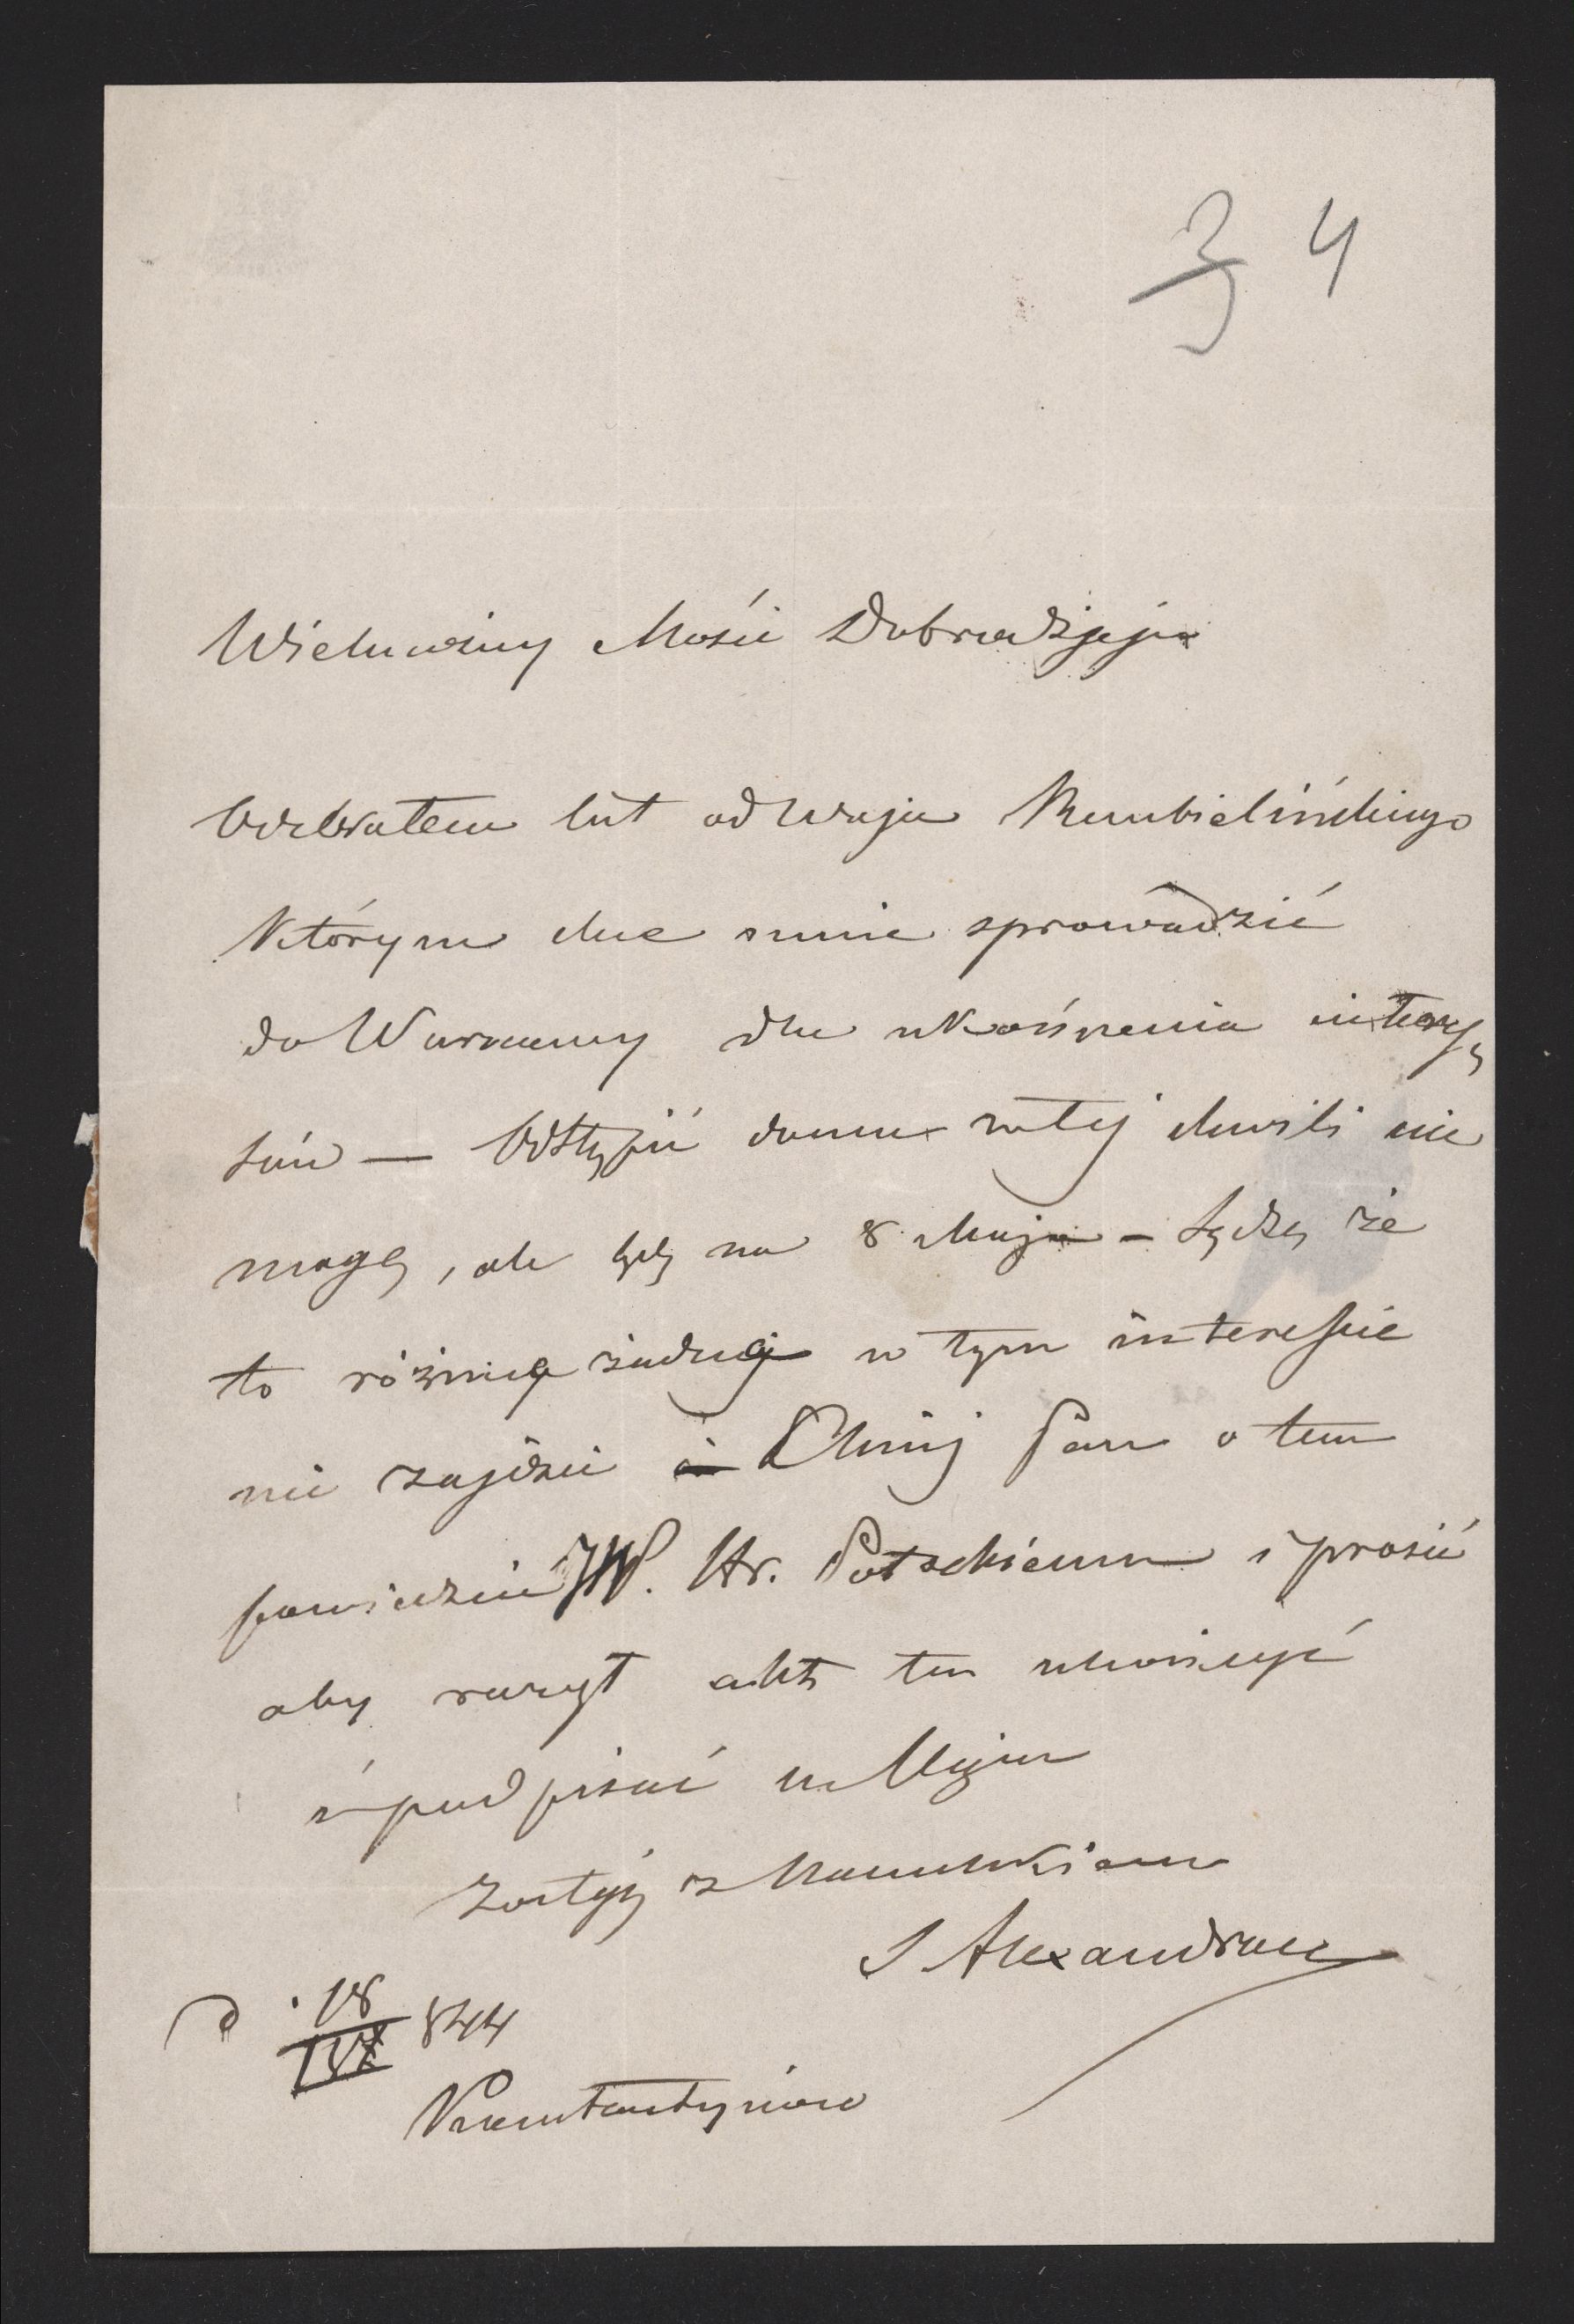 3 4
Wielmożny Mości Dobrodzieju
Odebrałem list od Wuja Rembielińskiego
którym chce mnie sprowadzić
do Warszawy dla ukończenia interes,
sów — Odstąpić domu w tej chwili nie
mogę, ale będę na 8 Maja – Sądzę że
to różnicę żadnej w tym interessie
nie zajdzie Chciej Pan o tem
powiedzieć JW. Hr. Potockiemu i prosić
aby raczył akt ten ukończyć
i podpisać w Maju
Zostaję z szacunkiem
S Alexandrowicz
d. 18/IV 844
Konstantynów